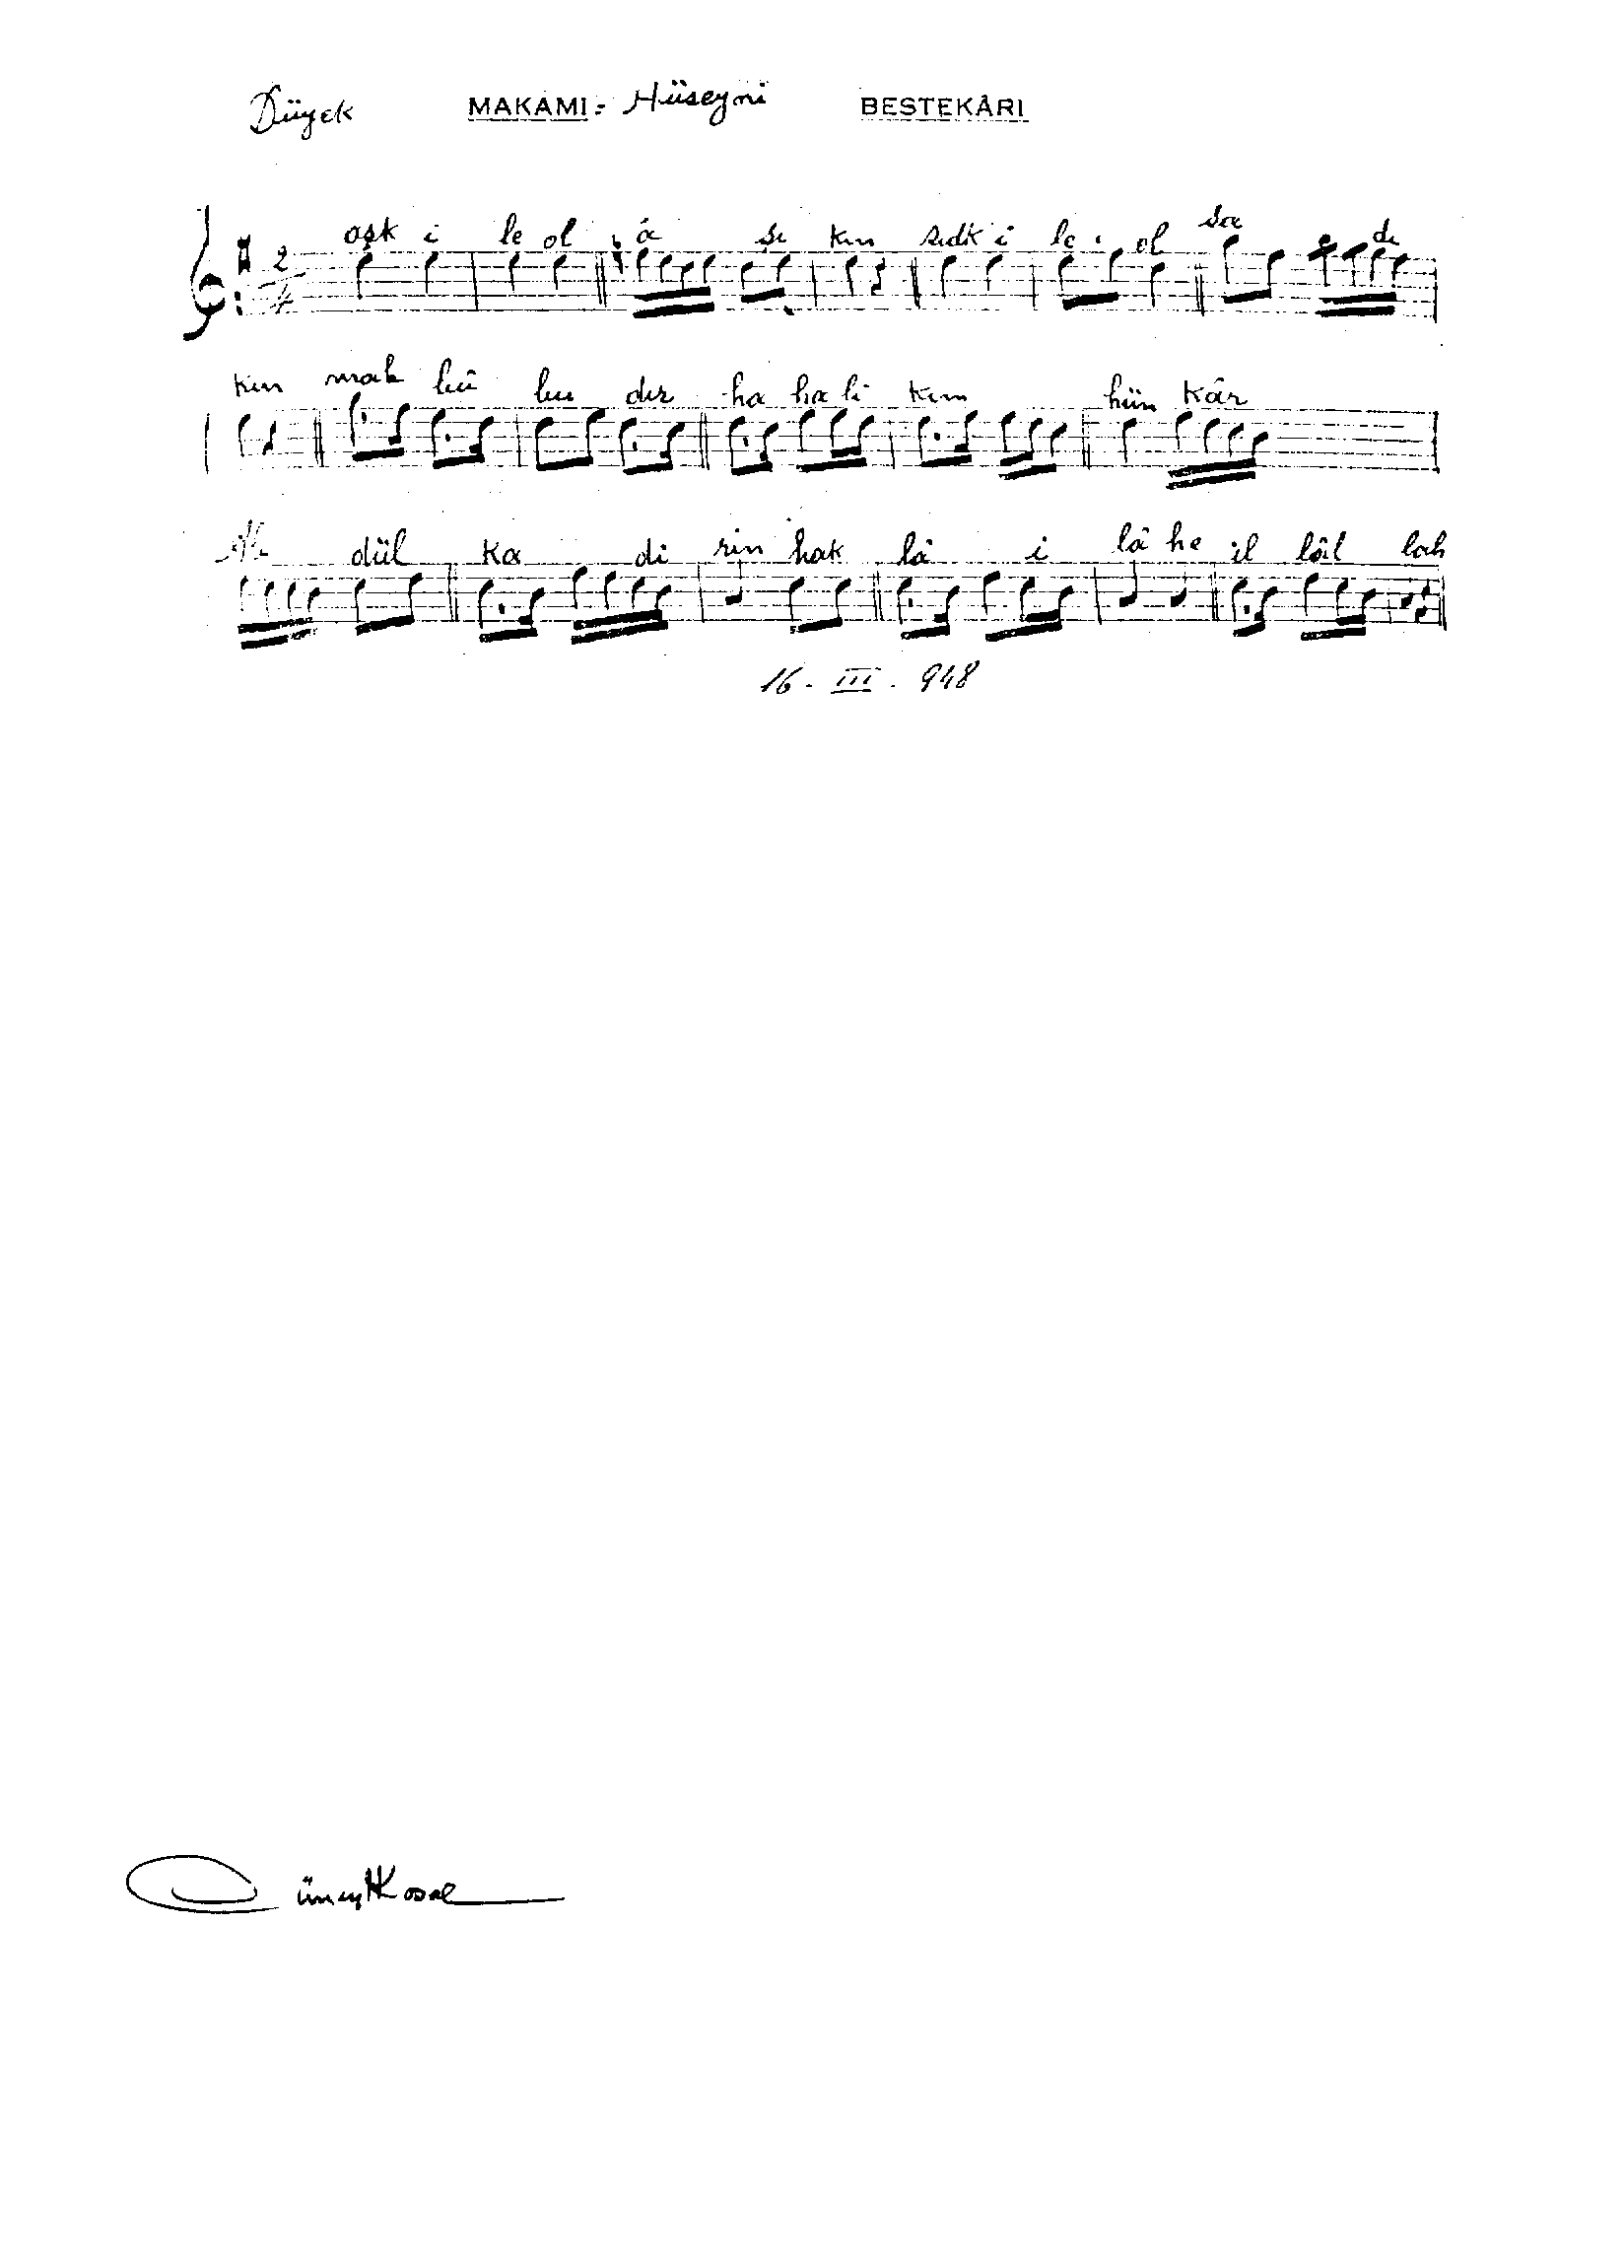 Düyek MAKAMI: Hüseyni BESTEKÂRI
2
4
aşk i le ol â şı kın sıdk i le ol sa dı
kın mak bû lu dır ha ha li kım hün kâr
dül ka di rin hak lâ i lâ he il lâl lah
16 - III - 948
Cüneyt Kosal